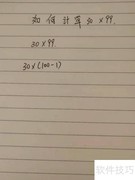 如何计算 30 × 99.
30 × 99.
30 × (100 - 1)
软件技巧